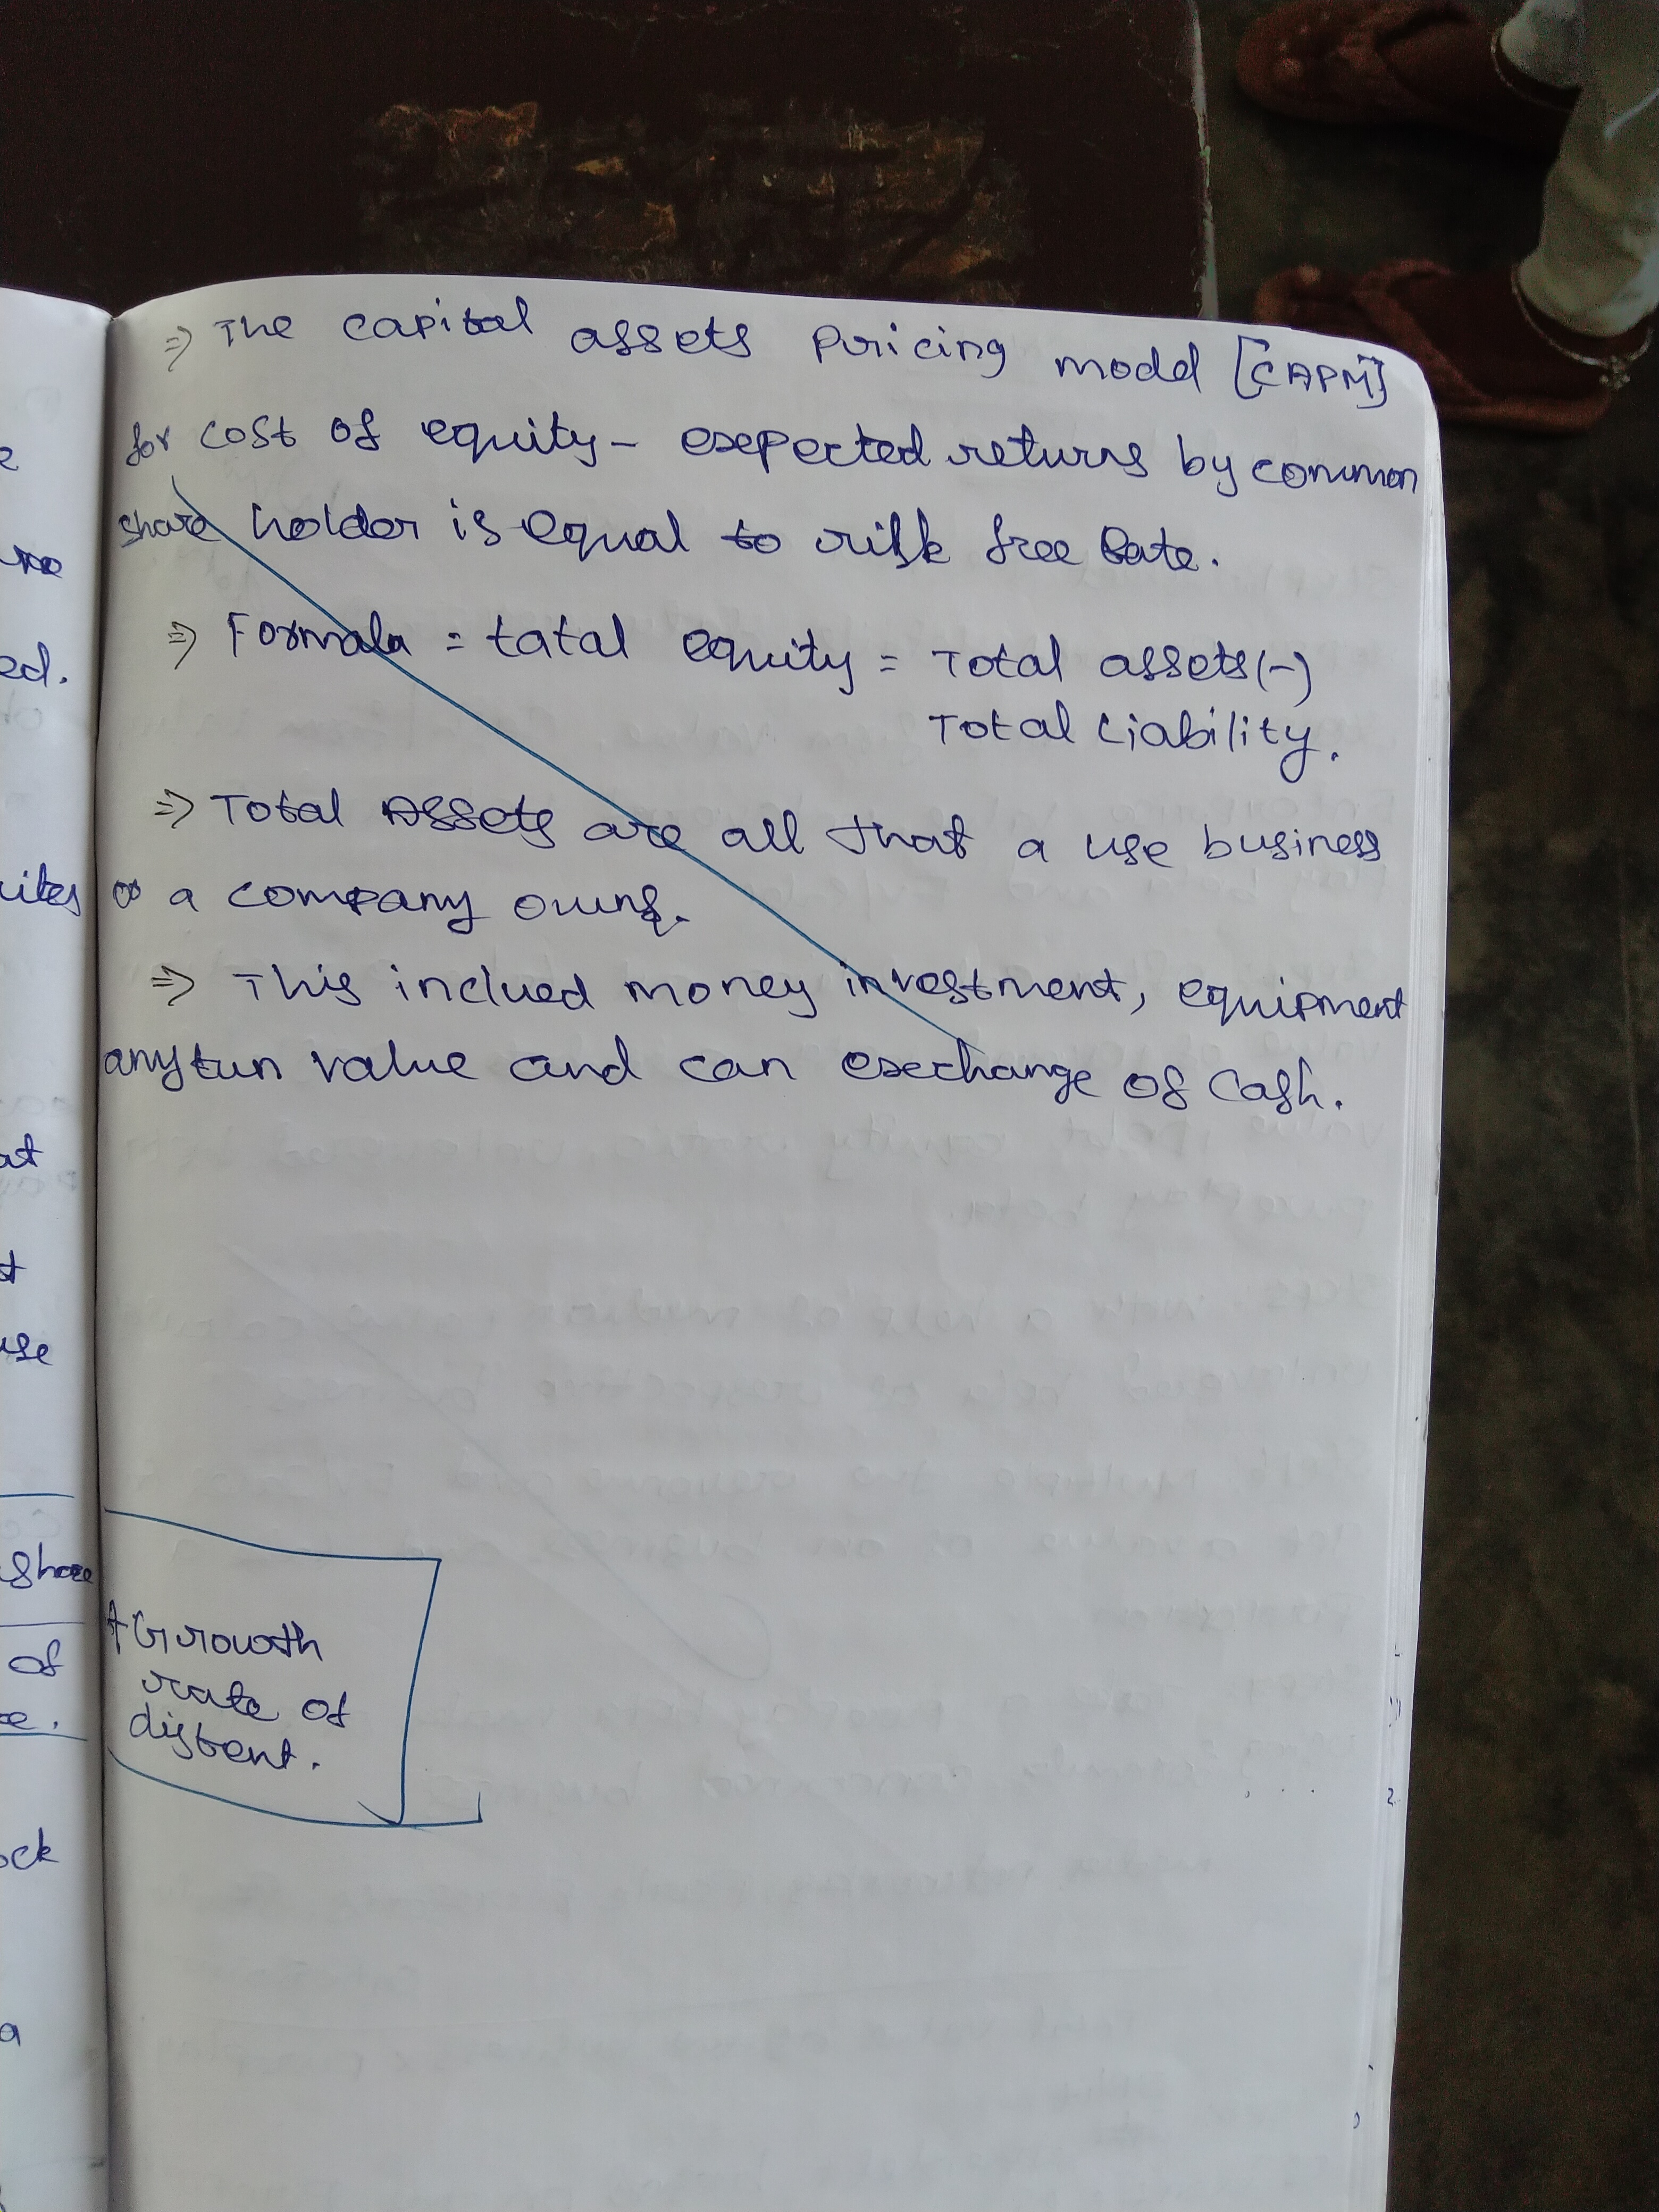 ⇒ The capital assets pricing model [CAPM]
for cost of equity - exepected returns by common
share holder is equal to risk free Rate.
⇒ Formala = tatal equity = Total assets (-)
Total Liability.
⇒ Total Assets are all that a use business
or a company owns.
⇒ This inclued money investment, equipment
any tun value and can exechange of Cash.
+ Growth
rate of
distent.
e
ed.
at
st
use
Share
of
ock
a